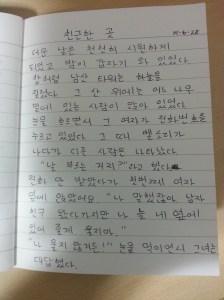 친근한 곳
더운 날은 천천히 시원하게
되었고 밤이 갑자기 와 있었다
창처럼 남산 타워는 하늘을
찔렀다. 그 산 위에는 어느 나무
밑에 있는 사람이 많아 있었다
눈물 흐르면서 그 여자가 전화번호를
누르고 있었다. 그 때 벨 소리가
나다가 다른 사람은 나타났다.
"날 부르는 거지?"라고 했다
전화 안 받았다가 한 번 여자
옆에 앉았어요. "나 말했잖아. 남자
친구 왔다가지만 나 늘 네 옆에
있어 줄게 울지마."
"나 울지 않거든!" 눈물 먹이면서 그녀는
대답했다.